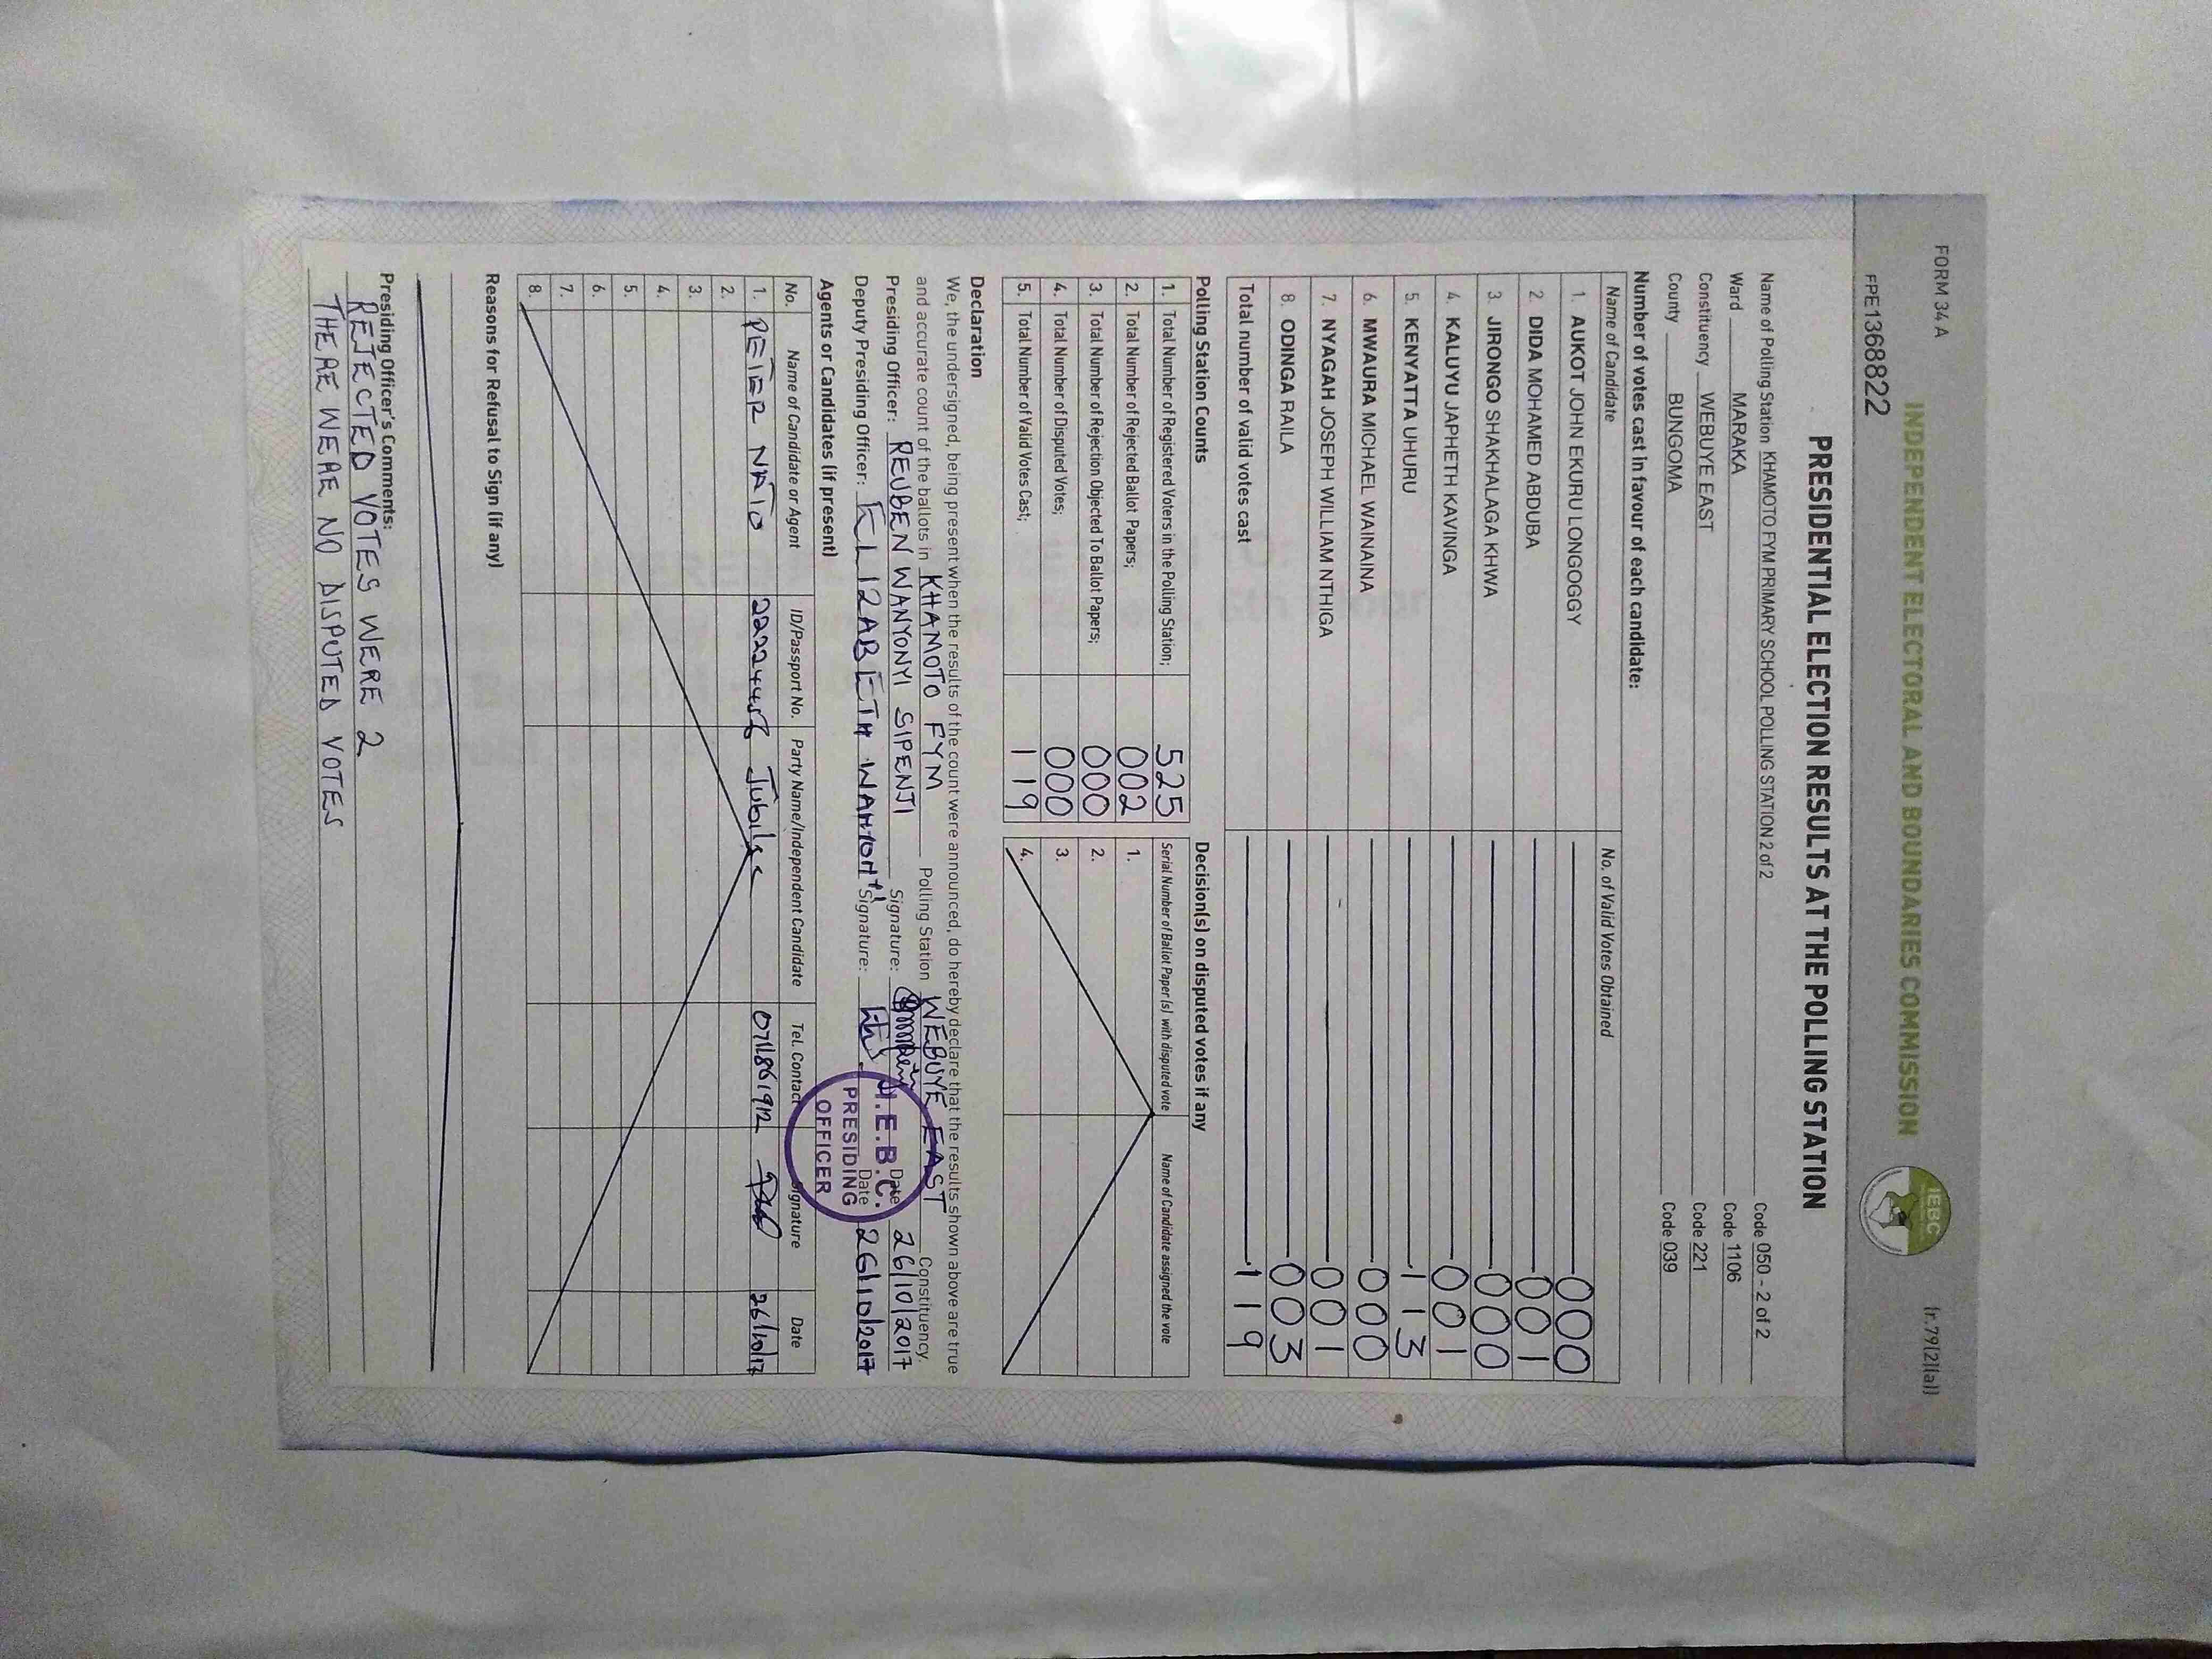 FORM 34 A
(r.79(2)(a))
INDEPENDENT ELECTORAL AND BOUNDARIES COMMISSION
IEBC
FPE1368822
PRESIDENTIAL ELECTION RESULTS AT THE POLLING STATION
Name of Polling Station KHAMOTO FYM PRIMARY SCHOOL POLLING STATION 2 of 2 Code 050 - 2 of 2
Ward MARAKA Code 1106
Constituency WEBUYE EAST Code 221
County BUNGOMA Code 039
Number of votes cast in favour of each candidate:
Name of Candidate No. of Valid Votes Obtained
1. AUKOT JOHN EKURU LONGOGGY 000
2. DIDA MOHAMED ABDUBA 001
3. JIRONGO SHAKHALAGA KHWA 000
4. KALUYU JAPHETH KAVINGA 001
5. KENYATTA UHURU 113
6. MWAURA MICHAEL WAINAINA 000
7. NYAGAH JOSEPH WILLIAM NTHIGA 001
8. ODINGA RAILA 003
Total number of valid votes cast 119
Polling Station Counts Decision(s) on disputed votes if any
1. Total Number of Registered Voters in the Polling Station; 525 Serial Number of Ballot Paper(s) with disputed vote Name of Candidate assigned the vote
2. Total Number of Rejected Ballot Papers; 002 1.
3. Total Number of Rejection Objected To Ballot Papers; 000 2.
4. Total Number of Disputed Votes; 000 3.
5. Total Number of Valid Votes Cast; 119 4.
Declaration
We, the undersigned, being present when the results of the count were announced, do hereby declare that the results shown above are true
and accurate count of the ballots in KHAMOTO FYM Polling Station WEBUYE EAST Constituency.
Presiding Officer: REUBEN WANYONYI SIPENJI Signature: Date 26/10/2017
Deputy Presiding Officer: ELIZABETH Signature: Date 26/10/2017
I.E.B.C.
PRESIDING
OFFICER
Agents or Candidates (if present)
No. Name of Candidate or Agent ID/Passport No. Party Name/Independent Candidate Tel. Contact Signature Date
1. PETER NATO Jubilee 26/10/17
2.
3.
4.
5.
6.
7.
8.
Reasons for Refusal to Sign (if any)
Presiding Officer's Comments:
REJECTED VOTES WERE 2
THERE WERE NO DISPUTED VOTES